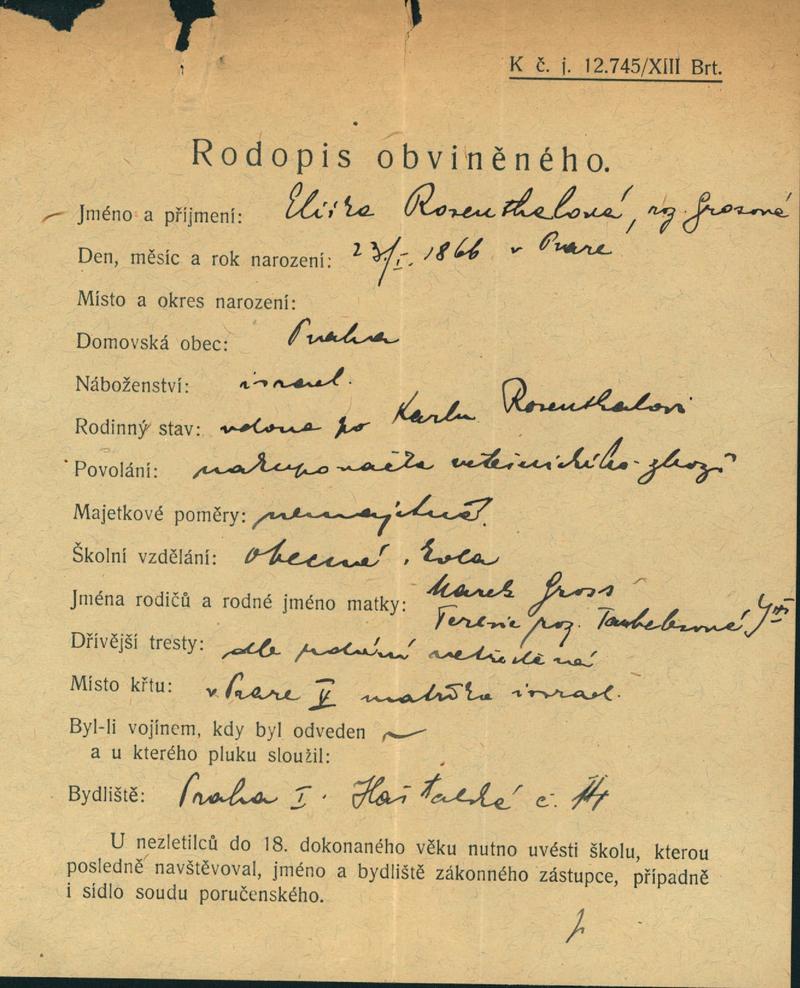 K č. j. 12.745/XIII Brt.
Rodopis obviněného.
Jméno a příjmení: Eliška Rosenthalová, roz. Grosová
Den, měsíc a rok narození: 23/I. 1866 v Praze
Místo a okres narození:
Domovská obec: Praha
Náboženství: israel.
Rodinný stav: vdova po Karlu Rosenthalovi
Povolání: nakupovačka vetešnického zboží
Majetkové poměry: nemajetná.
Školní vzdělání: obecná škola
Jména rodičů a rodné jméno matky: Marek Gross
Terezie roz.
Dřívější tresty: dle udání netrestána
Místo křtu: v Praze V matrika israel.
Byl-li vojínem, kdy byl odveden
a u kterého pluku sloužil:
Bydliště: Praha I. Haštalská č.
U nezletilců do 18. dokonaného věku nutno uvésti školu, kterou
posledně navštěvoval, jméno a bydliště zákonného zástupce, případně
i sídlo soudu poručenského.